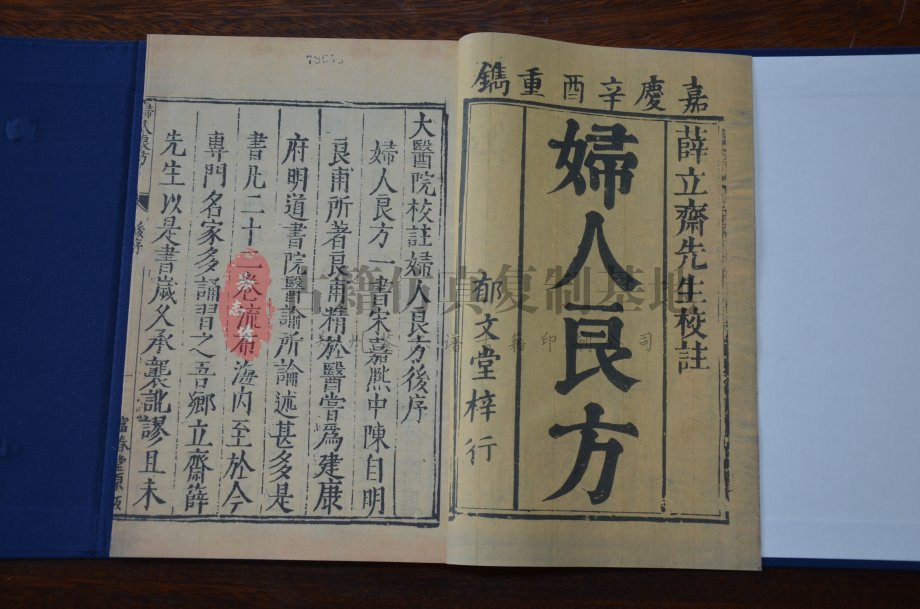 嘉慶辛酉重鐫
薛立齋先生校註
婦人良方
郁文堂梓行
太醫院校註婦人良方後序
婦人良方一書宋嘉熈中陳自明
良甫所著良甫精於醫嘗爲建康
府明道書院醫諭所論述甚多是
書凡二十一卷流布海内至於今
專門名家多誦習之吾鄉立齋薛
先生以是書歲久承襲訛謬且未
婦人良方
後序
富春堂原板
古籍仿真复制基地